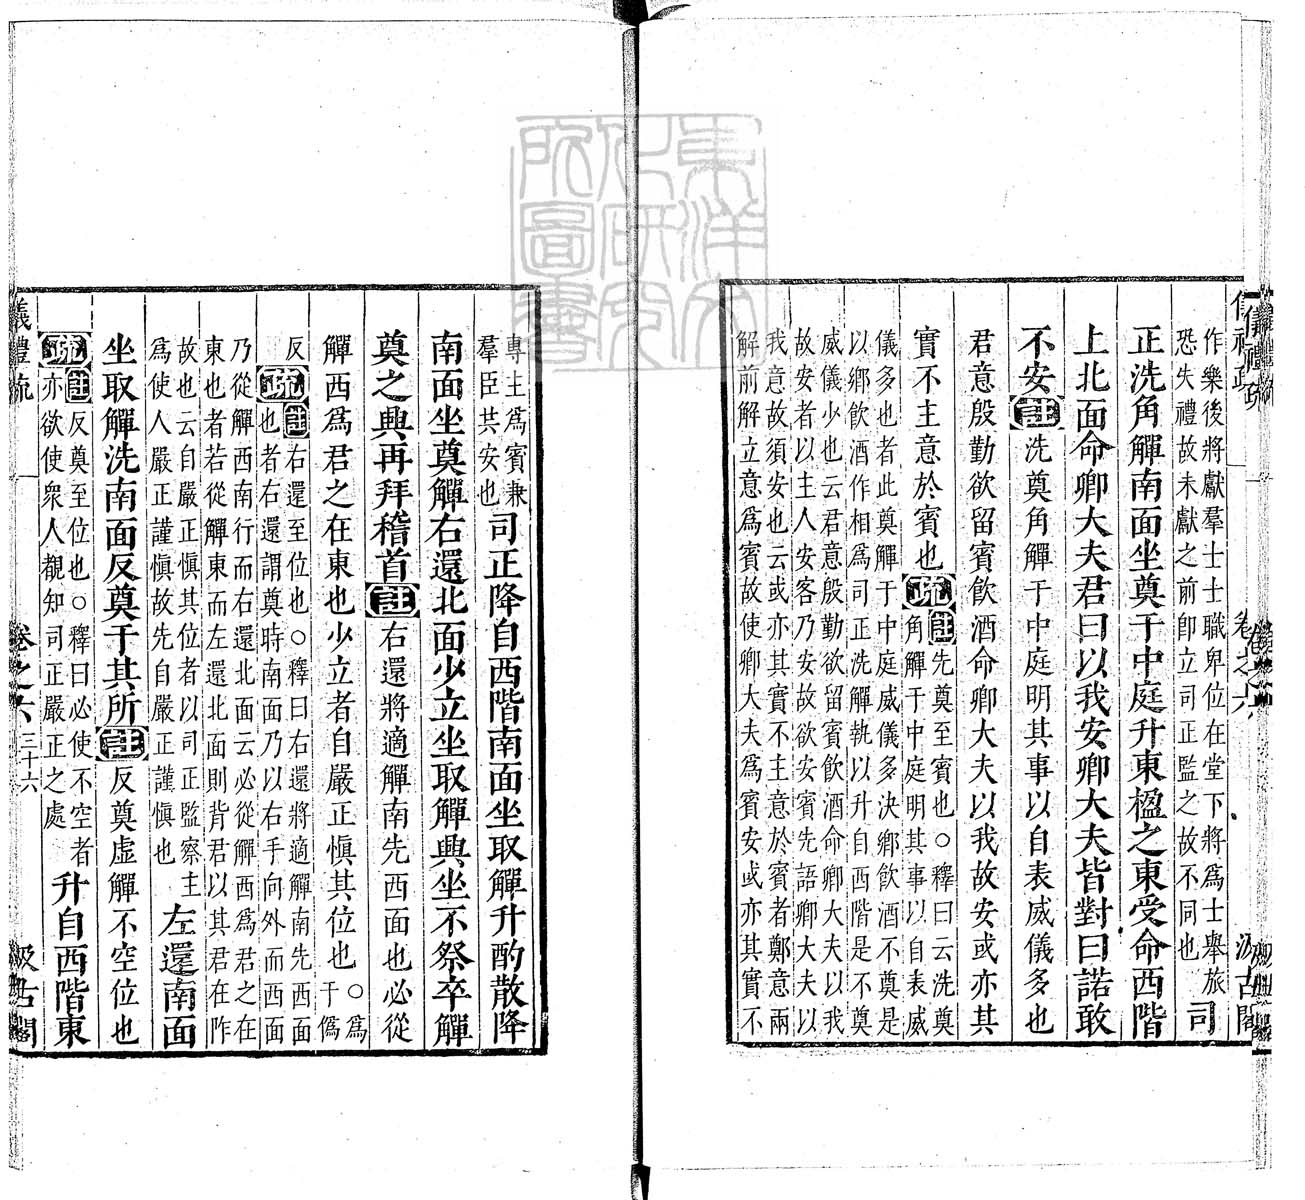 作樂後將獻羣士士職卑位在堂下將爲士舉旅
恐失禮故未獻之前卽立司正監之故不同也
司
正洗角觶南面坐奠于中庭升東楹之東受命西階
上北面命卿大夫君曰以我安卿大夫皆對曰諾敢
不安註洗奠角觶于中庭明其事以自表威儀多也
君意殷勤欲留賓飲酒命卿大夫以我故安或亦其
實不主意於賓也疏註
先奠至賓也○釋曰云洗奠
角觶于中庭明其事以自表威
儀多也者此奠觶于中庭威儀多決鄉飲酒不奠是
以鄉飲酒作相爲司正洗觶執以升自西階是不奠
威儀少也云君意殷勤欲留賓飲酒命卿大夫以我
故安者以主人安客乃安故欲安賓先語卿大夫以
我意故須安也云或亦其實不主意於賓者鄭意兩
解前解立意爲賓故使卿大夫爲賓安或亦其實不
專主爲賓兼
羣臣共安也
司正降自西階南面坐取觶升酌散降
南面坐奠觶右還北面少立坐取觶興坐不祭卒觶
奠之興再拜稽首註右還將適觶南先西面也必從
觶西爲君之在東也少立者自嚴正愼其位也○爲
于僞
反
疏註
右還至位也○釋曰右還將適觶南先西面
也者右還謂奠時南面乃以右手向外而西面
乃從觶西南行而右還北面云必從觶西爲君之在
東也者若從觶東而左還北面則背君以其君在阼
故也云自嚴正愼其位者以司正監察主
爲使人嚴正謹愼故先自嚴正謹愼也
左還南面
坐取觶洗南面反奠于其所註反奠虛觶不空位也
疏註
反奠至位也○釋曰必使不空者
亦欲使衆人覩知司正嚴正之處
升自西階東
儀禮疏
卷之六
三十六
汲古閣